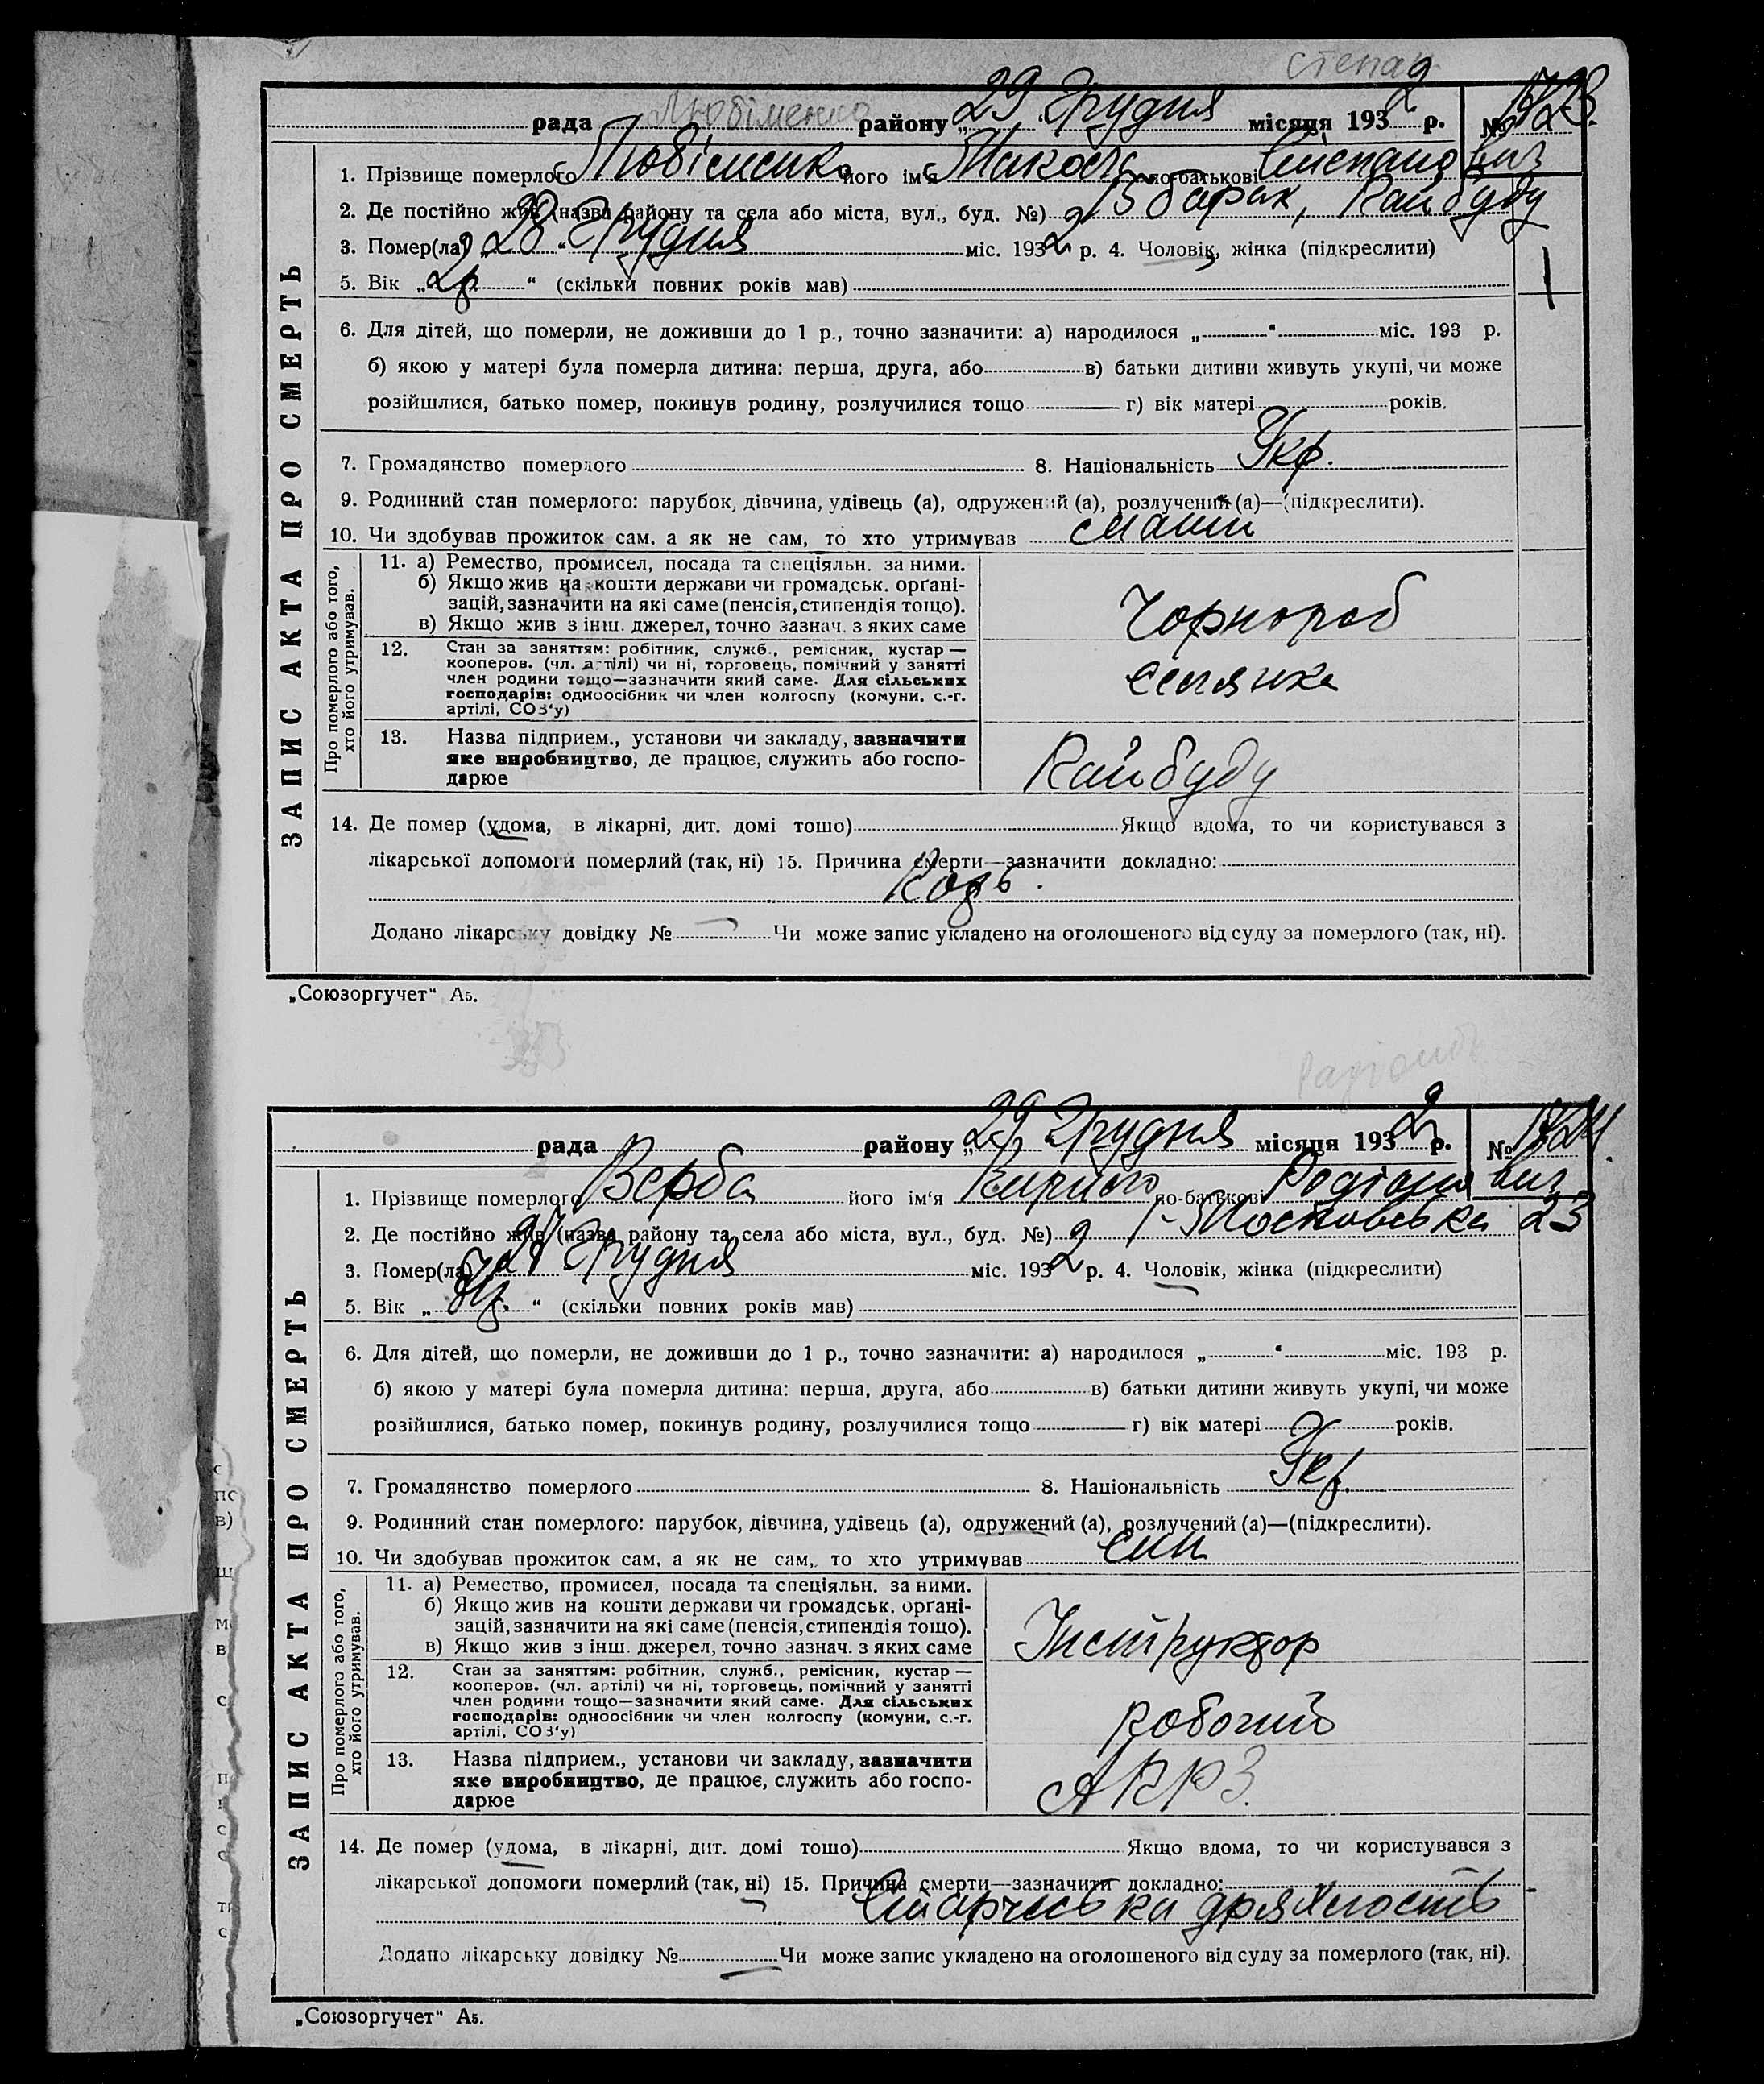 степан
Любіменко
рада району „29 Грудня місяця 1932 р. № 1823.
1. Прізвище померлого Любіменко його ім'я Микола по-батькові Степанович
2. Де постійно жив (назва району та села або міста, вул., буд. №) 2 15 барак, Райбуду
3. Помер(ла) „28“ Грудня міс. 1932 р. 4. Чоловік, жінка (підкреслити)
5. Вік „2р“ (скільки повних років мав)
6. Для дітей, що померли, не доживши до 1 р., точно зазначити: а) народилося „ “ міс. 193 р.
б) якою у матері була померла дитина: перша, друга, або в) батьки дитини живуть укупі, чи може
розійшлися, батько помер, покинув родину, розлучилися тощо г) вік матері років.
7. Громадянство померлого 8. Національність Укр.
9. Родинний стан померлого: парубок, дівчина, удівець (а), одружений (а), розлучений (а)—(підкреслити).
10. Чи здобував прожиток сам, а як не сам, то хто утримував мати
ЗАПИС АКТА ПРО СМЕРТЬ
Про померлого або того, хто його утримував.
11. а) Ремество, промисел, посада та спеціяльн. за ними.
б) Якщо жив на кошти держави чи громадськ. орґані-
зацій, зазначити на які саме (пенсія, стипендія тощо).
в) Якщо жив з інш. джерел, точно зазнач. з яких саме
Чорнороб
12. Стан за заняттям: робітник, служб., ремісник, кустар —
кооперов. (чл. артілі) чи ні, торговець, помічний у занятті
член родини тощо—зазначити який саме. Для сільських
господарів: одноосібник чи член колгоспу (комуни, с.-г.
артілі, СОЗ'у)
селянка
13. Назва підприєм., установи чи закладу, зазначити
яке виробництво, де працює, служить або госпо-
дарює
Райбуду
14. Де помер (удома, в лікарні, дит. домі тощо) Якщо вдома, то чи користувався з
лікарської допомоги померлий (так, ні) 15. Причина смерти—зазначити докладно:
Корь.
Додано лікарську довідку № — Чи може запис укладено на оголошеного від суду за померлого (так, ні).
„Союзоргучет“ А5.
Радіонов
рада району „29 Грудня місяця 1932 р. № 1824.
1. Прізвище померлого Верба його ім'я Кирило по-батькові Родіонович
2. Де постійно жив (назва району та села або міста, вул., буд. №) 2 1-Московська 23
3. Помер(ла) Грудня міс. 1932 р. 4. Чоловік, жінка (підкреслити)
5. Вік „ “ (скільки повних років мав)
6. Для дітей, що померли, не доживши до 1 р., точно зазначити: а) народилося „ “ міс. 193 р.
б) якою у матері була померла дитина: перша, друга, або в) батьки дитини живуть укупі, чи може
розійшлися, батько помер, покинув родину, розлучилися тощо г) вік матері років.
7. Громадянство померлого 8. Національність Укр.
9. Родинний стан померлого: парубок, дівчина, удівець (а), одружений (а), розлучений (а)—(підкреслити).
10. Чи здобував прожиток сам, а як не сам, то хто утримував син
ЗАПИС АКТА ПРО СМЕРТЬ
Про померлого або того, хто його утримував.
11. а) Ремество, промисел, посада та спеціяльн. за ними.
б) Якщо жив на кошти держави чи громадськ. орґані-
зацій, зазначити на які саме (пенсія, стипендія тощо).
в) Якщо жив з інш. джерел, точно зазнач. з яких саме
Інструктор
12. Стан за заняттям: робітник, служб., ремісник, кустар —
кооперов. (чл. артілі) чи ні, торговець, помічний у занятті
член родини тощо—зазначити який саме. Для сільських
господарів: одноосібник чи член колгоспу (комуни, с.-г.
артілі, СОЗ'у)
робочий
13. Назва підприєм., установи чи закладу, зазначити
яке виробництво, де працює, служить або госпо-
дарює
АРРЗ.
14. Де помер (удома, в лікарні, дит. домі тощо) Якщо вдома, то чи користувався з
лікарської допомоги померлий (так, ні) 15. Причина смерти—зазначити докладно:
Старческа дряхлость
Додано лікарську довідку № — Чи може запис укладено на оголошеного від суду за померлого (так, ні).
„Союзоргучет“ А5.